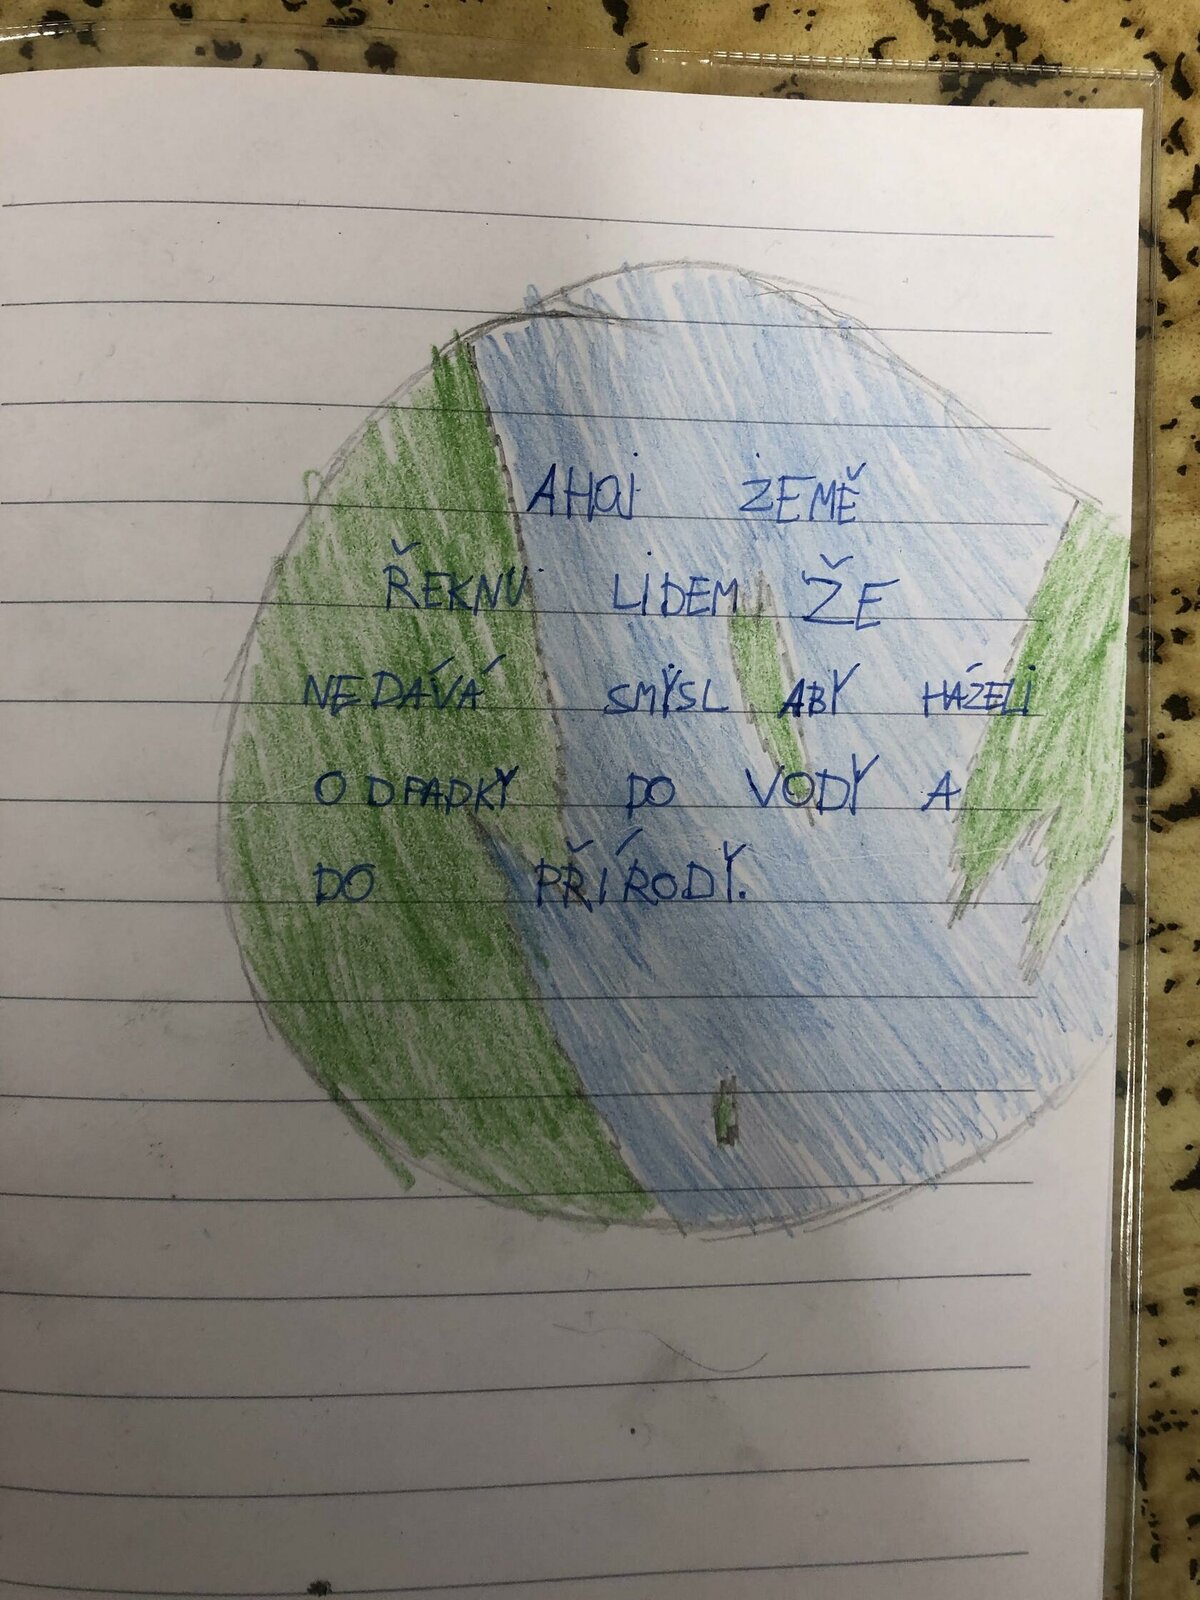 AHOJ ZEMĚ
ŘEKNU LIDEM ŽE
NEDÁVÁ SMYSL ABY HÁZELI
ODPADKY DO VODY A
DO PŘÍRODY.